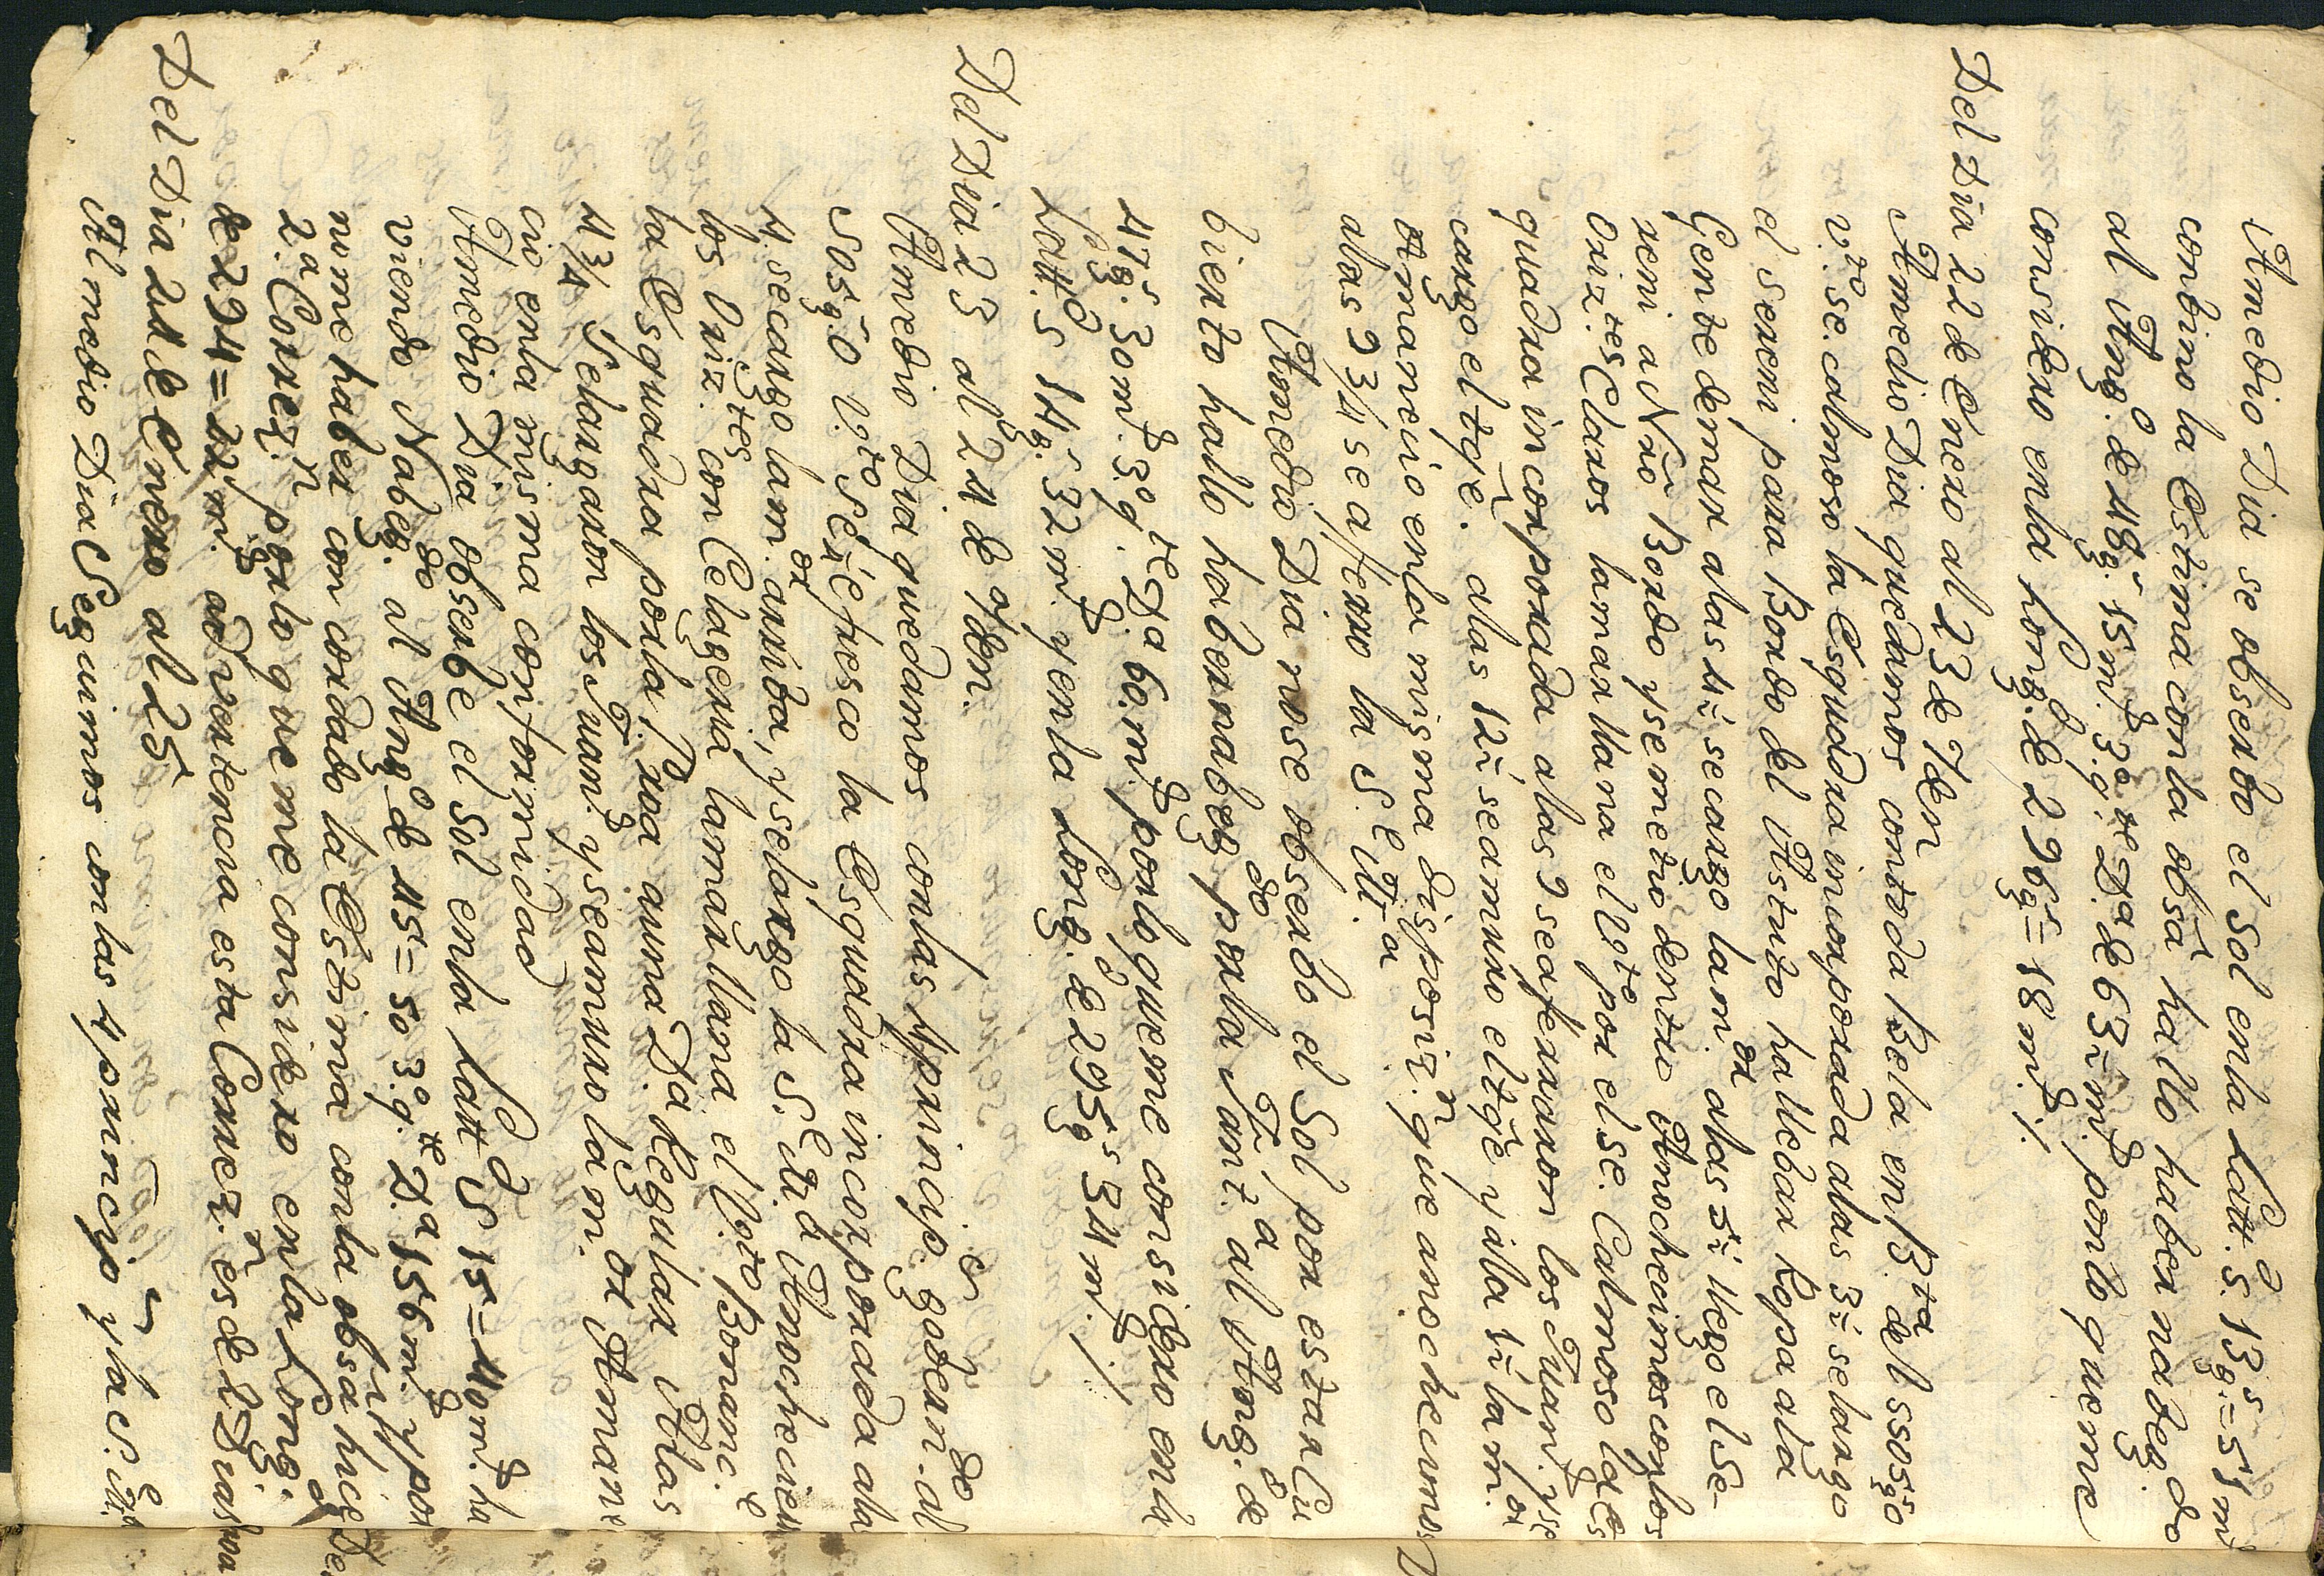 Amedio Dia se obserbo el Sol enla Latt.d S. 13g.s=51 m.s
conbino la Estima conla obsn. hallo haber nabeg.do
al Ang.o de 48g.s 15m.s 3.o q.te D.a de 63m.s porlo queme
considero enla Long.d de 296g.s=18m.s/.
Del Dia 22 de Enero al 23 de Yden
Amedio Dia quedamos contoda Bela en B.ta del SSO5gO
v.to se. calmoso la Esquadra incorporada alas 3 selargo
el sereni para Bordo del Astuto ha llebar Ropa ala
Gente demar alas 4 secargo lam.or alas 5 llego else-
reni a Nao Bordo ysemetio dentro Anochecimos conlos
Oriz.tes Claros lamar llana el V.to por else. Calmoso la es
quadra incorporada alas 7 seaferraron los Juan.s yse
cargo eltqe. alas 12 seamuro eltqe y ala 1 lam.or
amanecio enla misma disposiz.n que anochecimos
alas 9 3/4 se aferro la S.e Ut.a
Amedio Dia nose obserbo el Sol por estar Cu
bierto hallo haber nabeg.do porla Fant.a al Ang.o de
47g.s 30m.s 3.o q.te D.a 60.m.s porlo queme considero enla
Latt.d S 14g.s 32m.s yenla Long.d de 295g.s 34m.s/.
Del Dia 23 al 24 de Yden.
Amedio Dia quedamos conlas 4 princip.s gobern.do al
SO5gO V.to SE1/4E fresco la Esquadra incorporada ala
4. secargo lam.or arriba, yselargo la S.e Ut.a Anochecien
los Oriz.tes con Celageria lamar llana el V.to Bonanc.e
la Esquadra porla Proa auna D.a Regular Alas
4 3/4 Selargaron los Juan.s yseamuro lam.or Amane
cio enla misma conformidad
Amedio Dia obserbe el Sol enla Latt.d S 15=40m.s ha
viendo Nabeg.do al Ang.o de 45=50 3.o q.te D.a 156m.s y por
nome haber concordado la Estima conla obsn hice De
2.a Correz.n porlo queme considero enla Long.d
de 294=22m.s advertencia esta Correz.n es de 2 Dias
Del Dia 24 de Enero al 25
Al medio Dia Seguimos conlas 4 princip.s y la S.e Ut.a